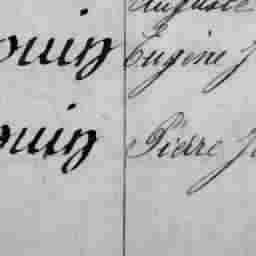 Auguste
ouin Eugène J
ouin Pierre J